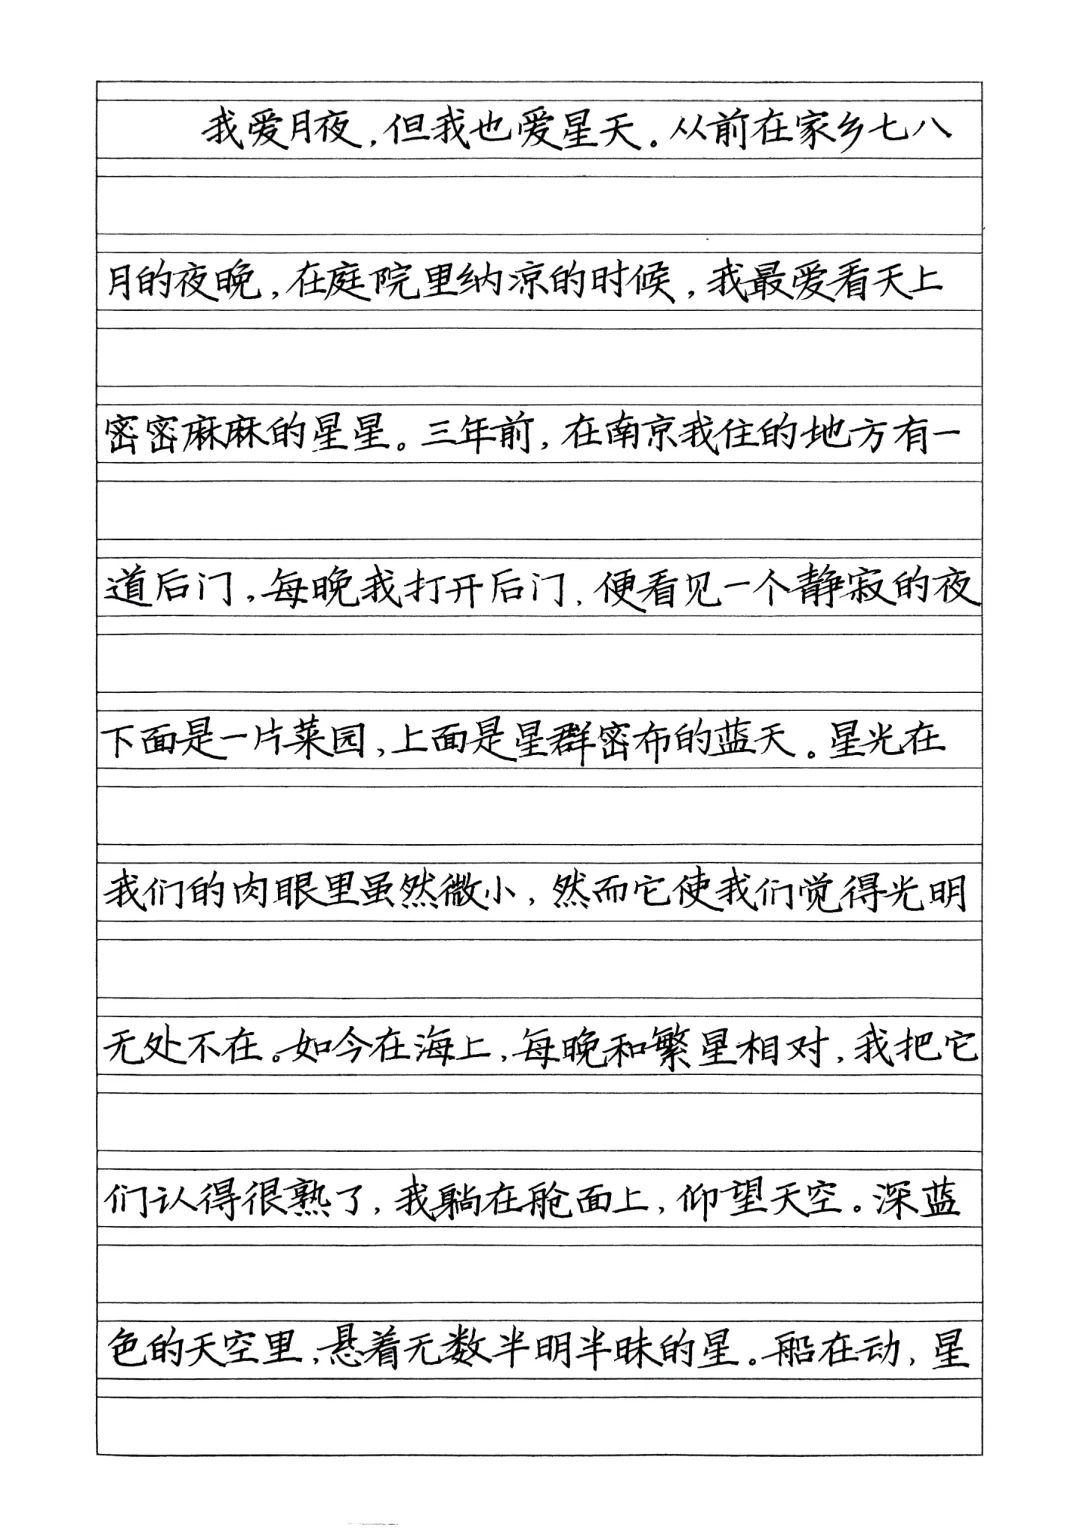 我爱月夜，但我也爱星天。从前在家乡七八
月的夜晚，在庭院里纳凉的时候，我最爱看天上
密密麻麻的星星。三年前，在南京我住的地方有一
道后门，每晚我打开后门，便看见一个静寂的夜
下面是一片菜园，上面是星群密布的蓝天。星光在
我们的肉眼里虽然微小，然而它使我们觉得光明
无处不在。如今在海上，每晚和繁星相对，我把它
们认得很熟了，我躺在舱面上，仰望天空。深蓝
色的天空里，悬着无数半明半昧的星。船在动，星